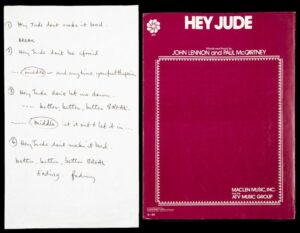 1) Hey Jude don't make it bad.
BREAK
2) Hey Jude don't be afraid
middle and anytime you feel the pain
3) Hey Jude don't let me down
better, better, better BREAK.
middle let it out & let it in ...
4) Hey Jude don't make it bad
better, better, better BREAK
Ending. Fading
HEY JUDE
Words and Music by
JOHN LENNON and PAUL McCARTNEY
MACLEN MUSIC, INC.
ATV MUSIC GROUP